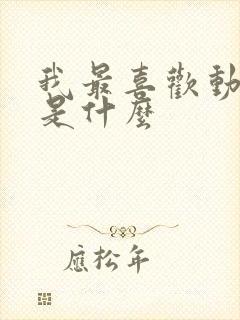 我最喜歡動
是什麼
應松年